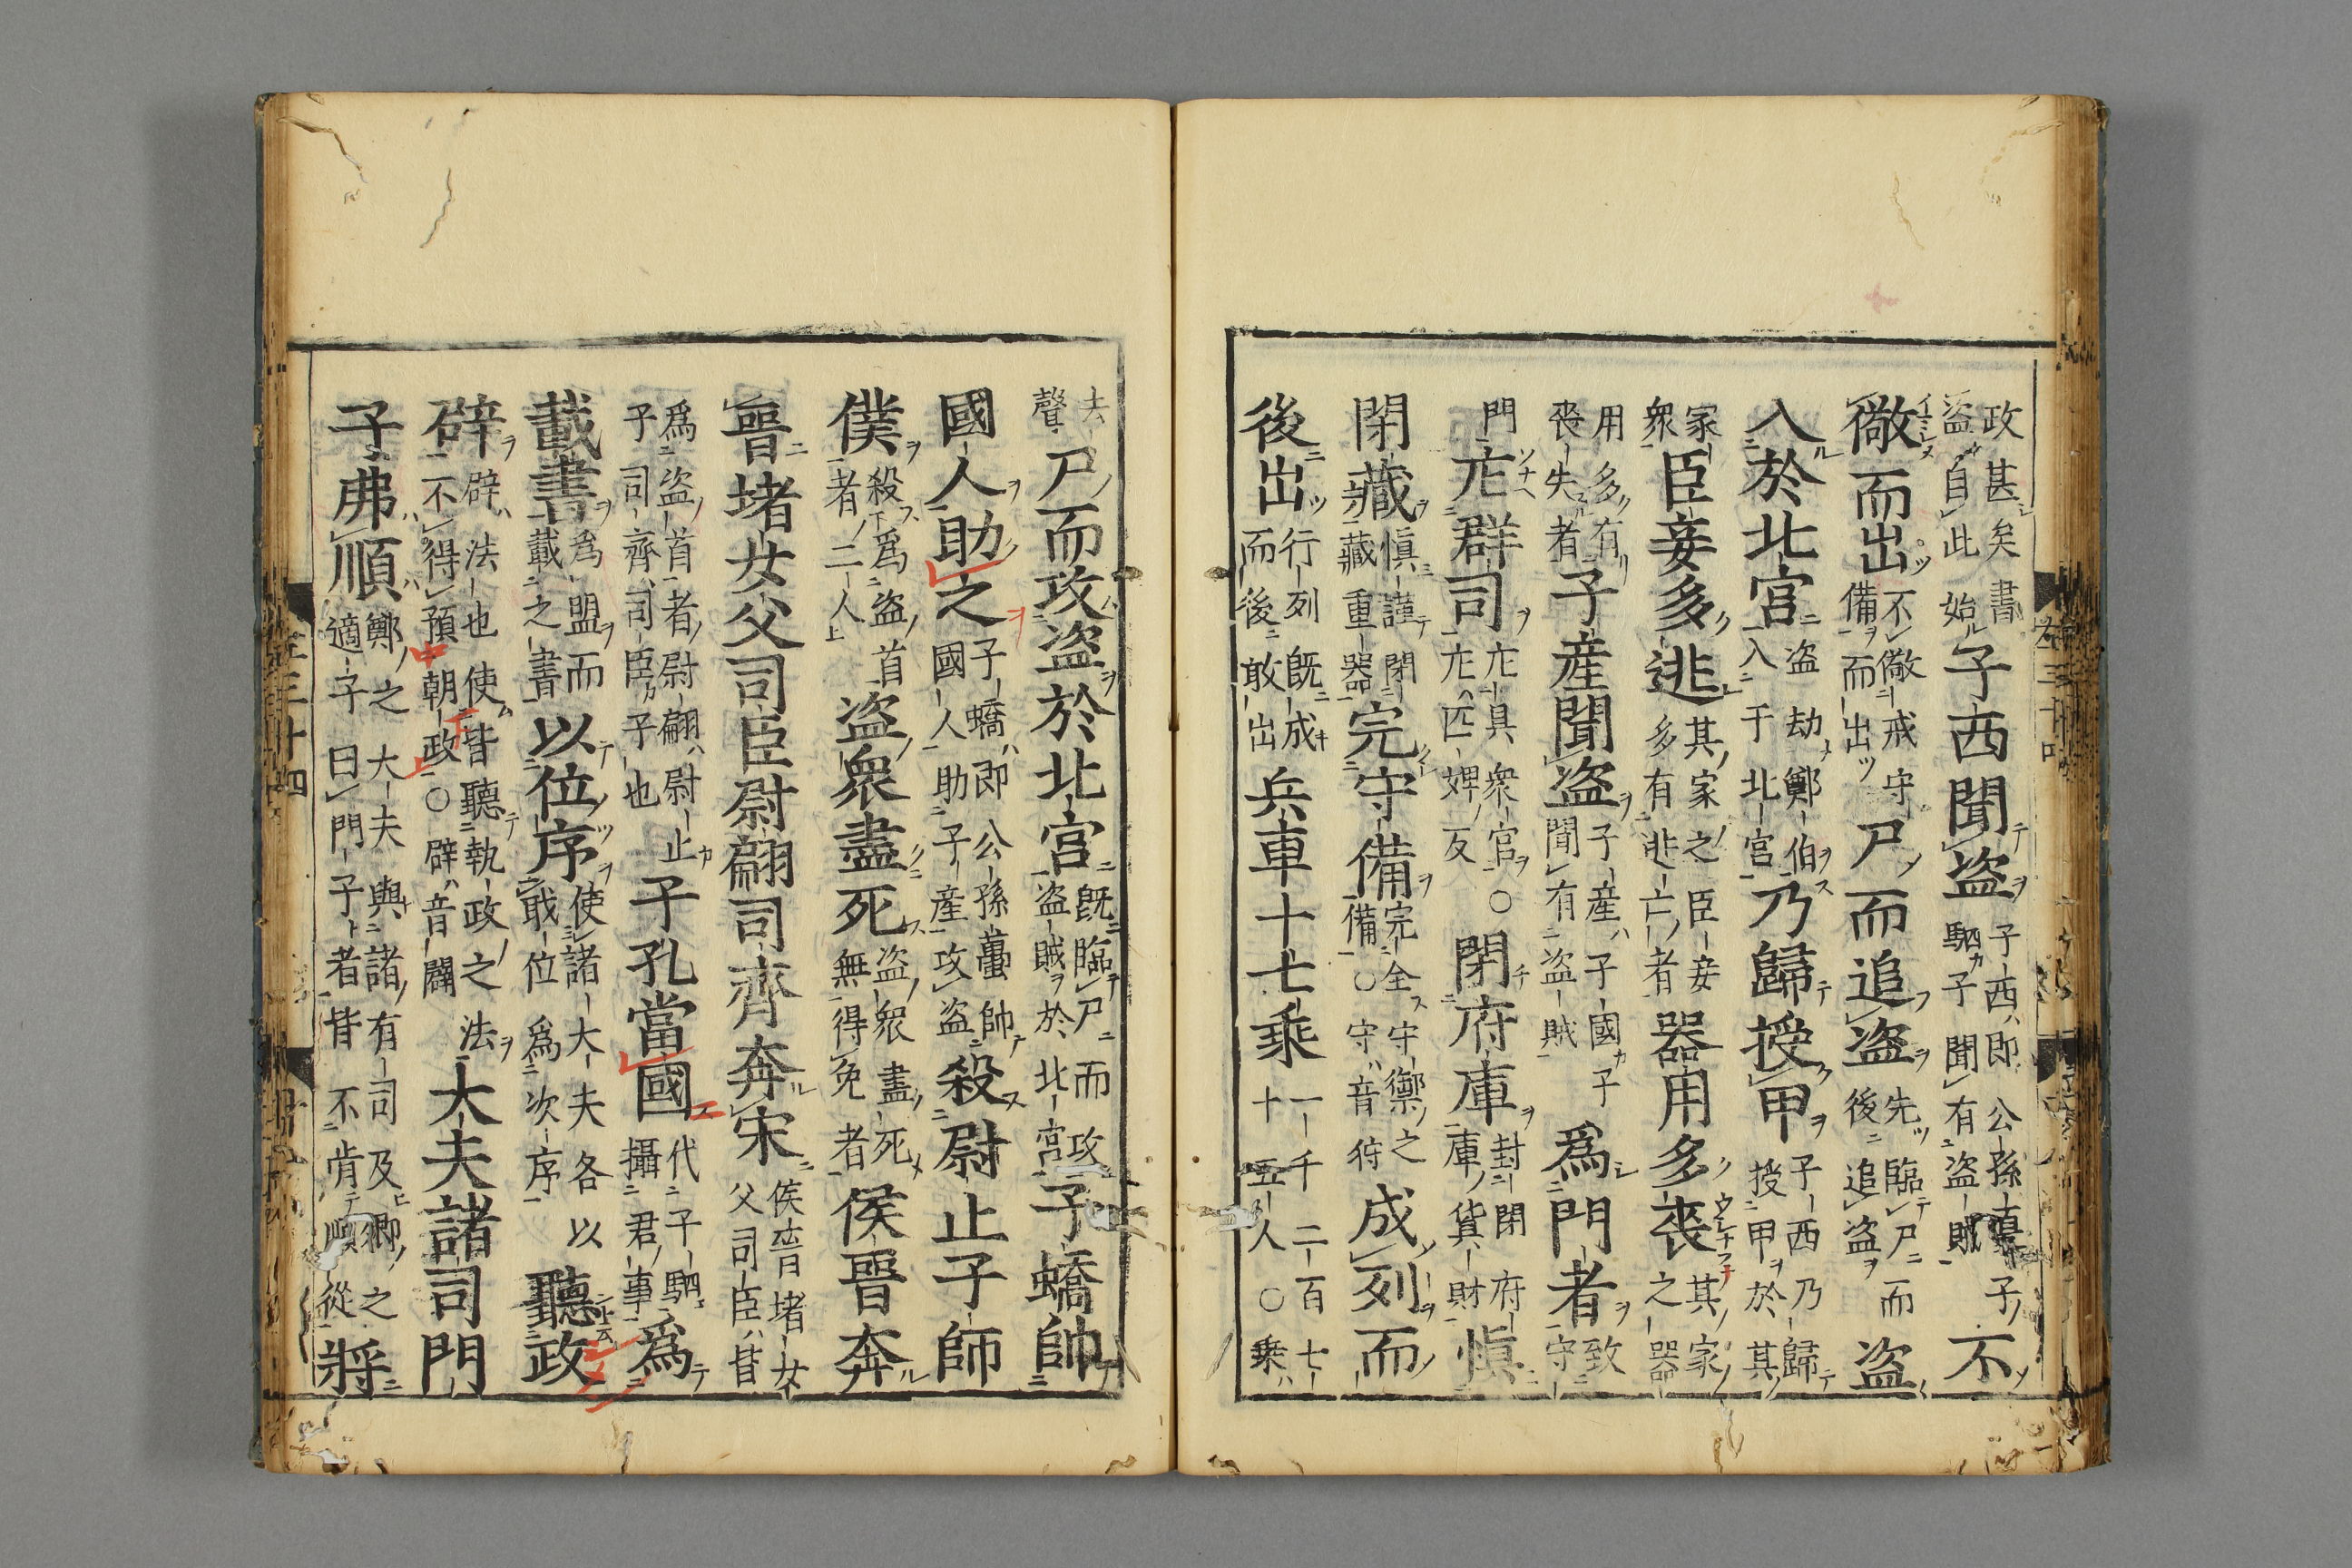 政甚矣書盗自此始子西聞盗子西即公孫夏子駟子聞有盗賊不
儆而出不儆戒守備而出尸而追盗先臨尸而後追盗盗
入於北宮盗劫鄭伯入于北宮乃歸授甲子西乃歸授甲於其
家衆臣妾多逃其家之臣妾多有逃亡者器用多喪其家之器
用多有喪失者子産聞盗子産子國子聞有盗賊爲門者致守
門庀群司庀具衆官○庀匹婢反閉府庫封閉府庫貨財慎
閉藏慎謹閉藏重器完守備完全守禦之備○守音狩成列而
後出行列既成而後敢出兵車十七乘一千二百七十五人○乘
去聲尸而攻盗於北宮既臨尸而攻盗賊於北宮子蟜帥
國人助之子蟜即公孫蠆帥國人助子産攻盗殺尉止子師
僕殺爲盗首者二人盗衆盡死盗衆盡死無得免者侯晉奔
晉堵女父司臣尉翩司齊奔宋侯晉堵女父司臣皆
爲盗首者尉翩尉止子司齊司臣子也子孔當國代子駟攝君事爲
載書爲盟而載之書以位序使諸大夫各以敢位爲次序聽政
辟辟法也使皆聽執政之法不得預朝政○辟音闢大夫諸司門
子弗順鄭之大夫與諸有司及卿之適子曰門子者皆不肯順從將